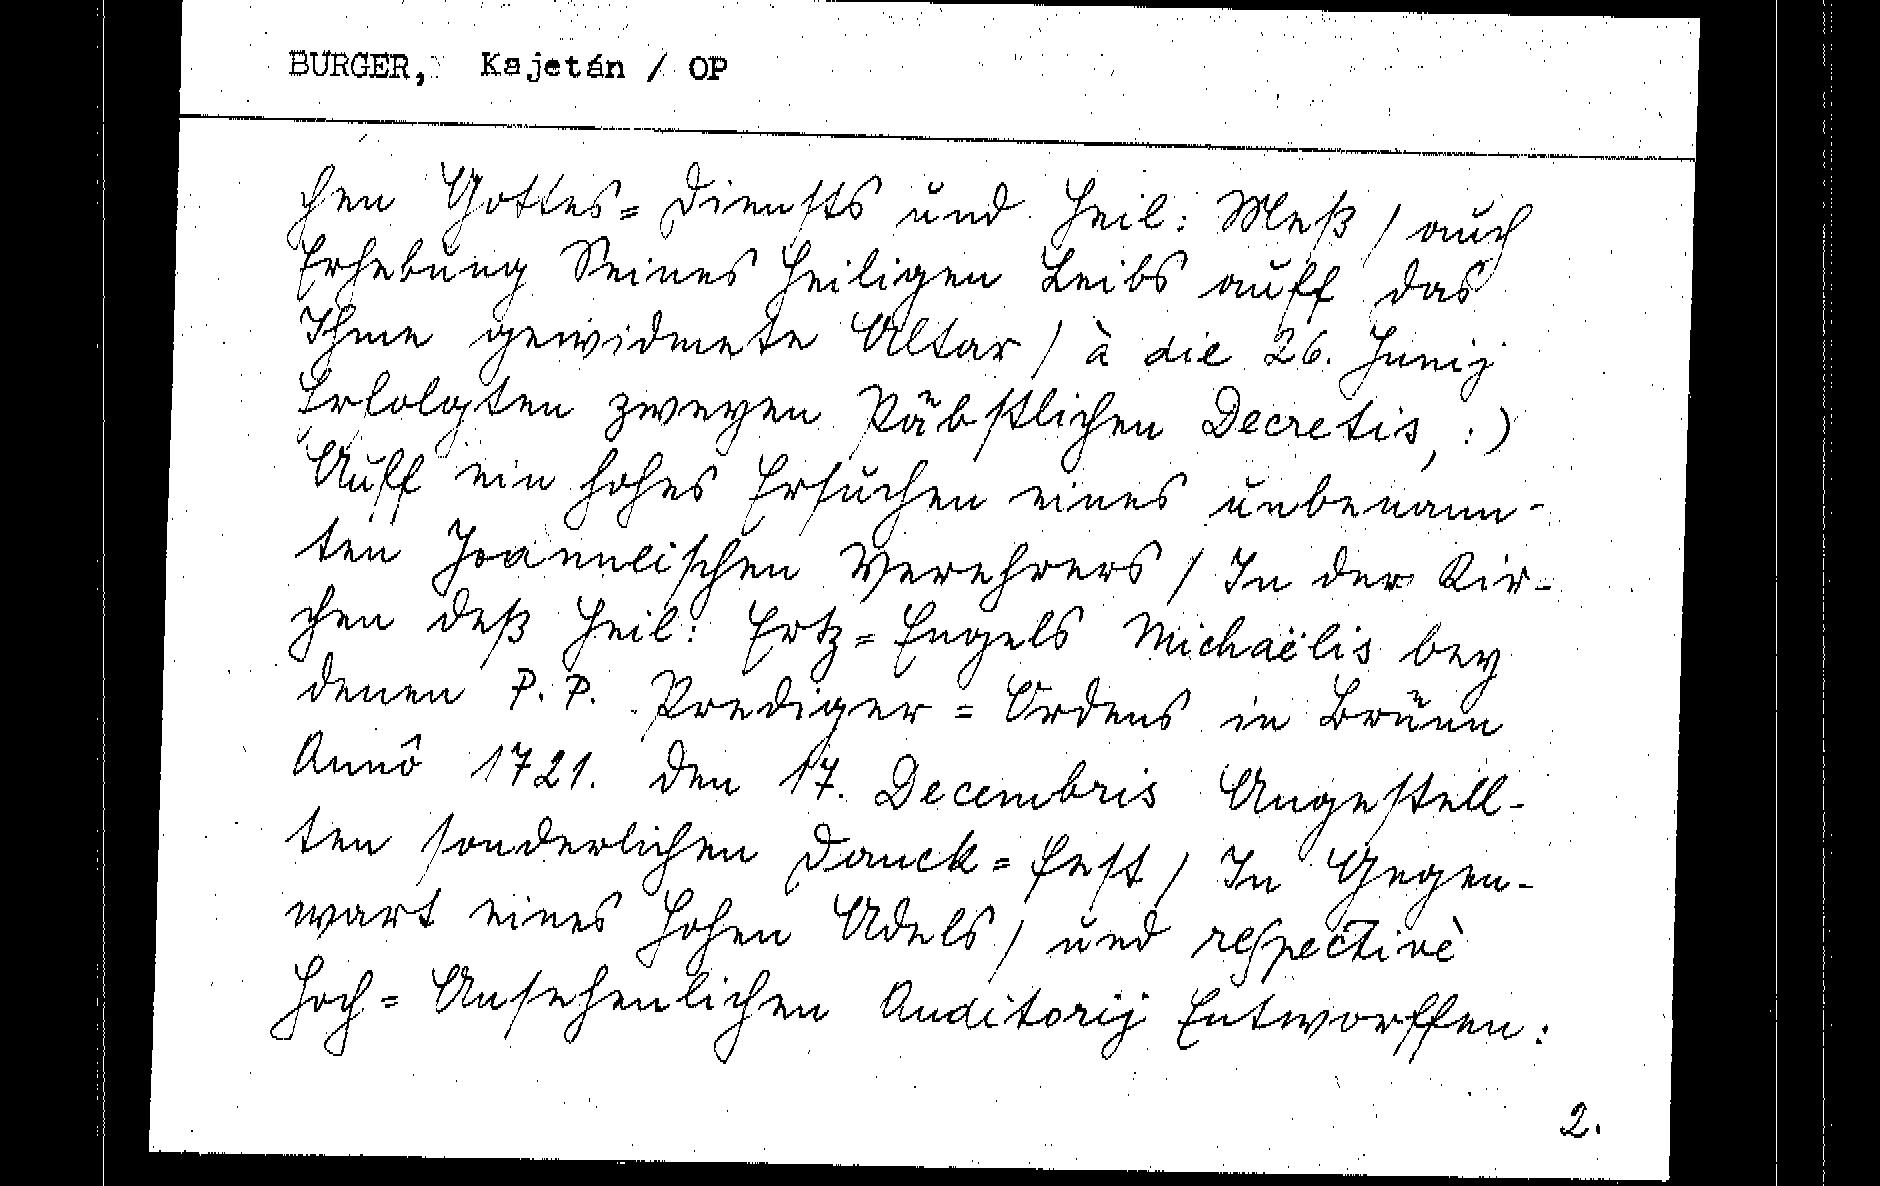 BURGER, Kajetán / OP
chen Gottes= Diensts und Heil: Meß / auch
Erhebung Seines Heiligen Leibs auff das
Ihme gewidmete Altar / à die 26. Junij
Erfolgten zweyen Päbstlichen Decretis, :)
Auff ein hohes Ersuchen eines unbenann-
ten Joanneischen Verehrers / In der Kir-
chen deß Heil: Ertz= Engels Michaëlis bey
denen P. P. Prediger = Ordens in Brünn
Annô 1721. den 17. Decembris Angestell-
ten sonderlichen Danck = Fest / In Gegen-
wart eines Hohen Adels / und respectivè
Hoch= Ansehenlichen Auditorij Entworffen:
2.